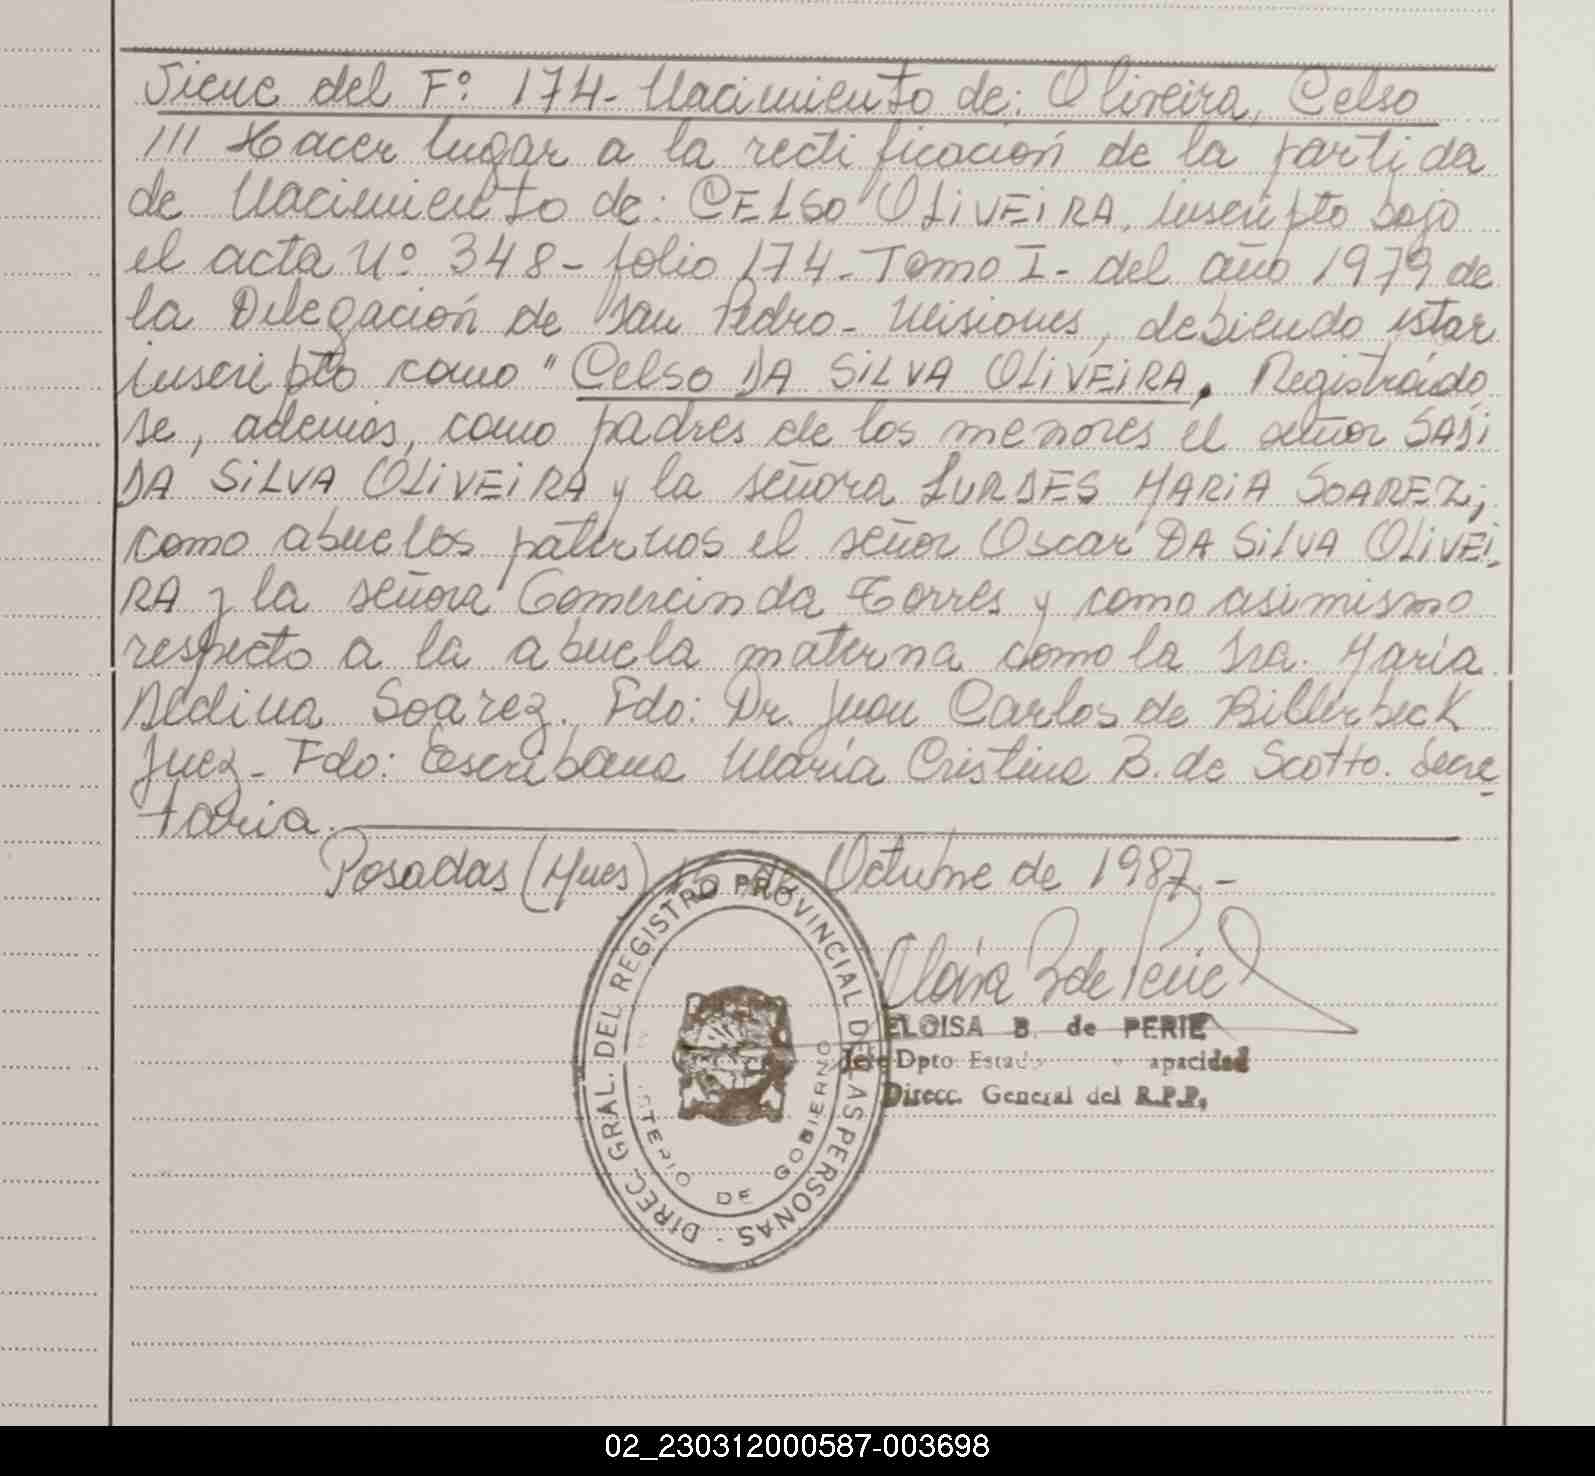 Viene del Fº. 174- Nacimiento de: Oliveira, Celso
/// Hacer lugar a la rectificación de la partida
de Nacimiento de: CELSO OLIVEIRA, inscripto bajo
el acta Nº. 348- folio 174- Tomo I- del año 1979 de
la Delegación de San Pedro- Misiones, debiendo estar
inscripto como "Celso DA SILVA OLIVEIRA. Registrándo
se, además, como padres de los menores el señor SADI
DA SILVA OLIVEIRA y la señora LURDES MARIA SOAREZ;
como abuelos paternos el señor Oscar DA SILVA OLIVEI-
RA y la señora Gomercinda Torres y como asimismo
respecto a la abuela materna como la Sra. María
Dedina Soarez. Fdo: Dr. Juan Carlos de Billerbeck
Juez- Fdo: Escribana María Cristina B. de Scotto. Secre
taria.
Posadas (Mnes) de Octubre de 1987.-
DIREC. GRAL. DEL REGISTRO PROVINCIAL DE LAS PERSONAS
DE GOBIERNO
ELOISA B. de PERIE
Jefe Dpto. Estado apacidad
Direcc. General del R.P.P.
02_230312000587-003698